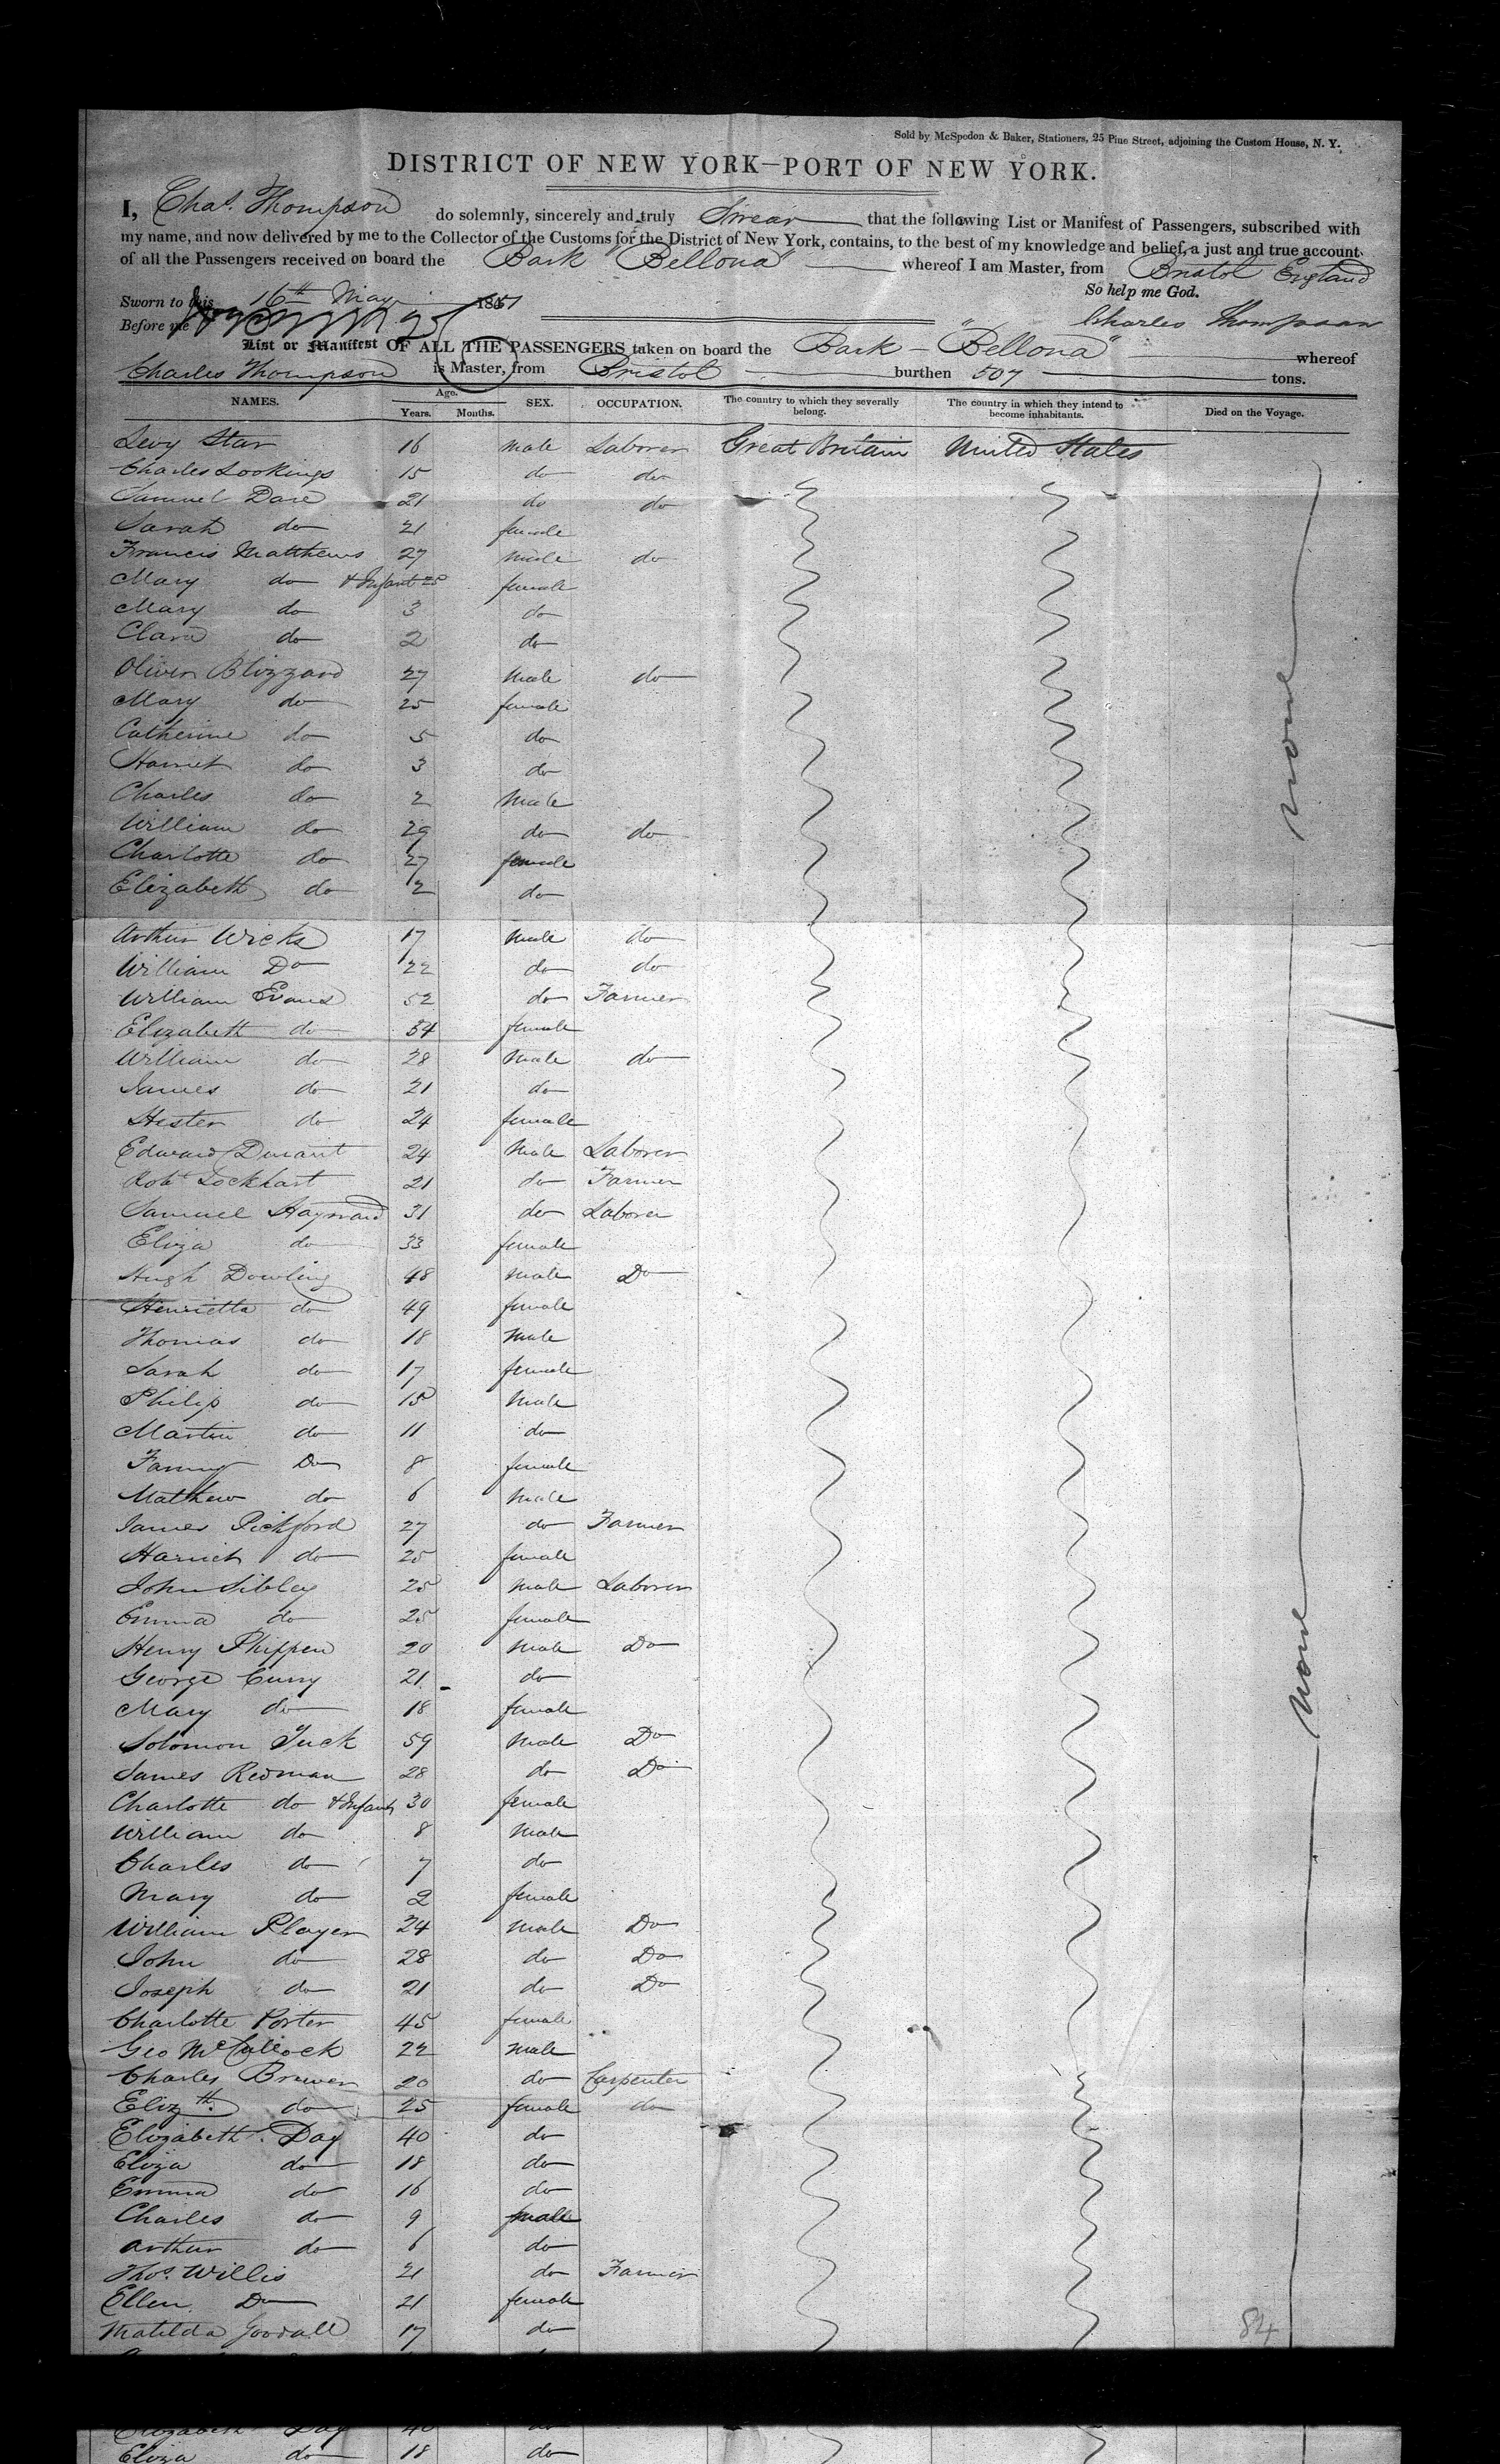 Sold by McSpedon & Baker, Stationers, 25 Pine Street, adjoining the Custom House, N. Y.
DISTRICT OF NEW YORK—PORT OF NEW YORK.
I, Chas. Thompson do solemnly, sincerely and truly Swear that the following List or Manifest of Passengers, subscribed with
my name, and now delivered by me to the Collector of the Customs for the District of New York, contains, to the best of my knowledge and belief, a just and true account
of all the Passengers received on board the Bark "Bellona" whereof I am Master, from Bristol England
So help me God.
Sworn to this 16th May 1851
Charles Thompson
Before me
List or Manifest OF ALL THE PASSENGERS taken on board the Bark - "Bellona" whereof
Charles Thompson is Master, from Bristol burthen 507 tons.
NAMES. Age. Years. Months. SEX. OCCUPATION. The country to which they severally belong. The country in which they intend to become inhabitants. Died on the Voyage.
Levy Star 16 male Laborer Great Britain United States
Charles Lookings 15 do do
Samuel Dare 21 do do
Sarah do 21 female
Francis Matthews 27 male do
Mary do & Infant 25 female
Mary do 3 do
Clara do 2 do
Oliver Blizzard 27 male do
Mary do 25 female
Catherine do 5 do
Harriet do 3 do
Charles do 2 male
William do 29 do do
Charlotte do 27 female
Elizabeth do 2 do
none
Arthur Wicks 17 male do
William Do 22 do do
William Evans 52 do Farmer
Elizabeth do 54 female
William do 28 male do
James do 21 do
Hester do 24 female
Edward Durant 24 male Laborer
Robt Lockhart 21 do Farmer
Samuel Hayward 31 do Laborer
Eliza do 33 female
Hugh Dowling 48 male Do
Henrietta do 49 female
Thomas do 18 male
Sarah do 17 female
Philip do 15 male
Martin do 11 do
Fanny Do 8 female
Mathew do 6 male
James Pickford 27 do Farmer
Harriet do 25 female
John Sibley 25 male Laborer
Emma do 25 female
Henry Phippen 20 male Do
George Curry 21 do
Mary do 18 female
none
Solomon Tuck 59 male Do
James Redman 28 do Do
Charlotte do & Infant 30 female
William do 8 male
Charles do 7 do
Mary do 2 female
William Player 24 male Do
John do 28 do Do
Joseph do 21 do Do
Charlotte Porter 45 female
Geo McCullock 22 male
Charles Brewer 20 do Carpenter
Elizth. do 25 female do
Elizabeth Day 40 do
Eliza do 18 do
Emma do 16 do
Charles do 9 male
Arthur do 6 do
Thos. Willis 21 do Farmer
Ellen Do 21 female
Matilda Goodall 17 do
84
Elizabeth Day 40 do
Eliza do 18 do